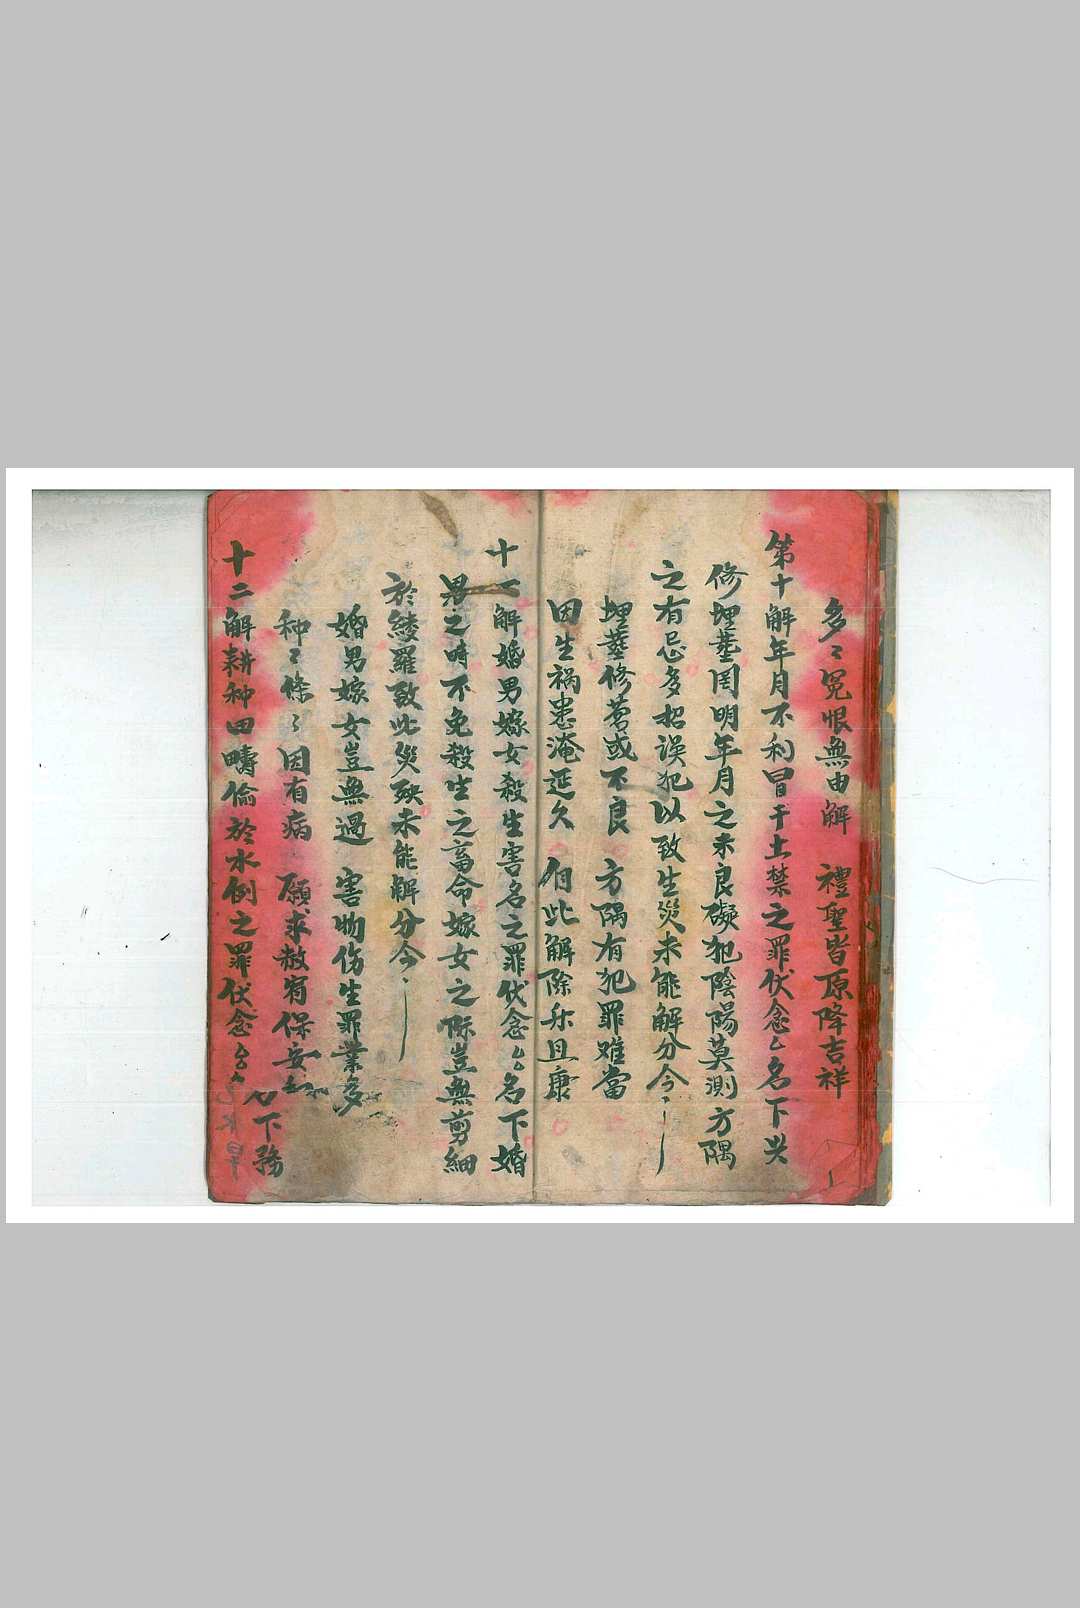 多〻冤恨無由解　禮聖皆原降吉祥
第十解年月不利冒干土禁之罪伏念厶名下兴
修埋塟罔明年月之未良礙犯陰陽莫測方隅
之有忌多招误犯以致生災未能解分今〻
埋塟修营或不良　方隅有犯罪难當
因生祸患淹延久　但此解除永且康
十一解婚男嫁女殺生害名之罪伏念厶名下婚
男之時不免殺生之畜命嫁女之際豈無剪細
於綾羅致此災殃未能解分今〻
婚男嫁女豈無過　害物伤生罪業多
种〻條〻因有病　願求赦宥保安和
十二解耕种田疇偷於水例之罪伏念厶名
下務